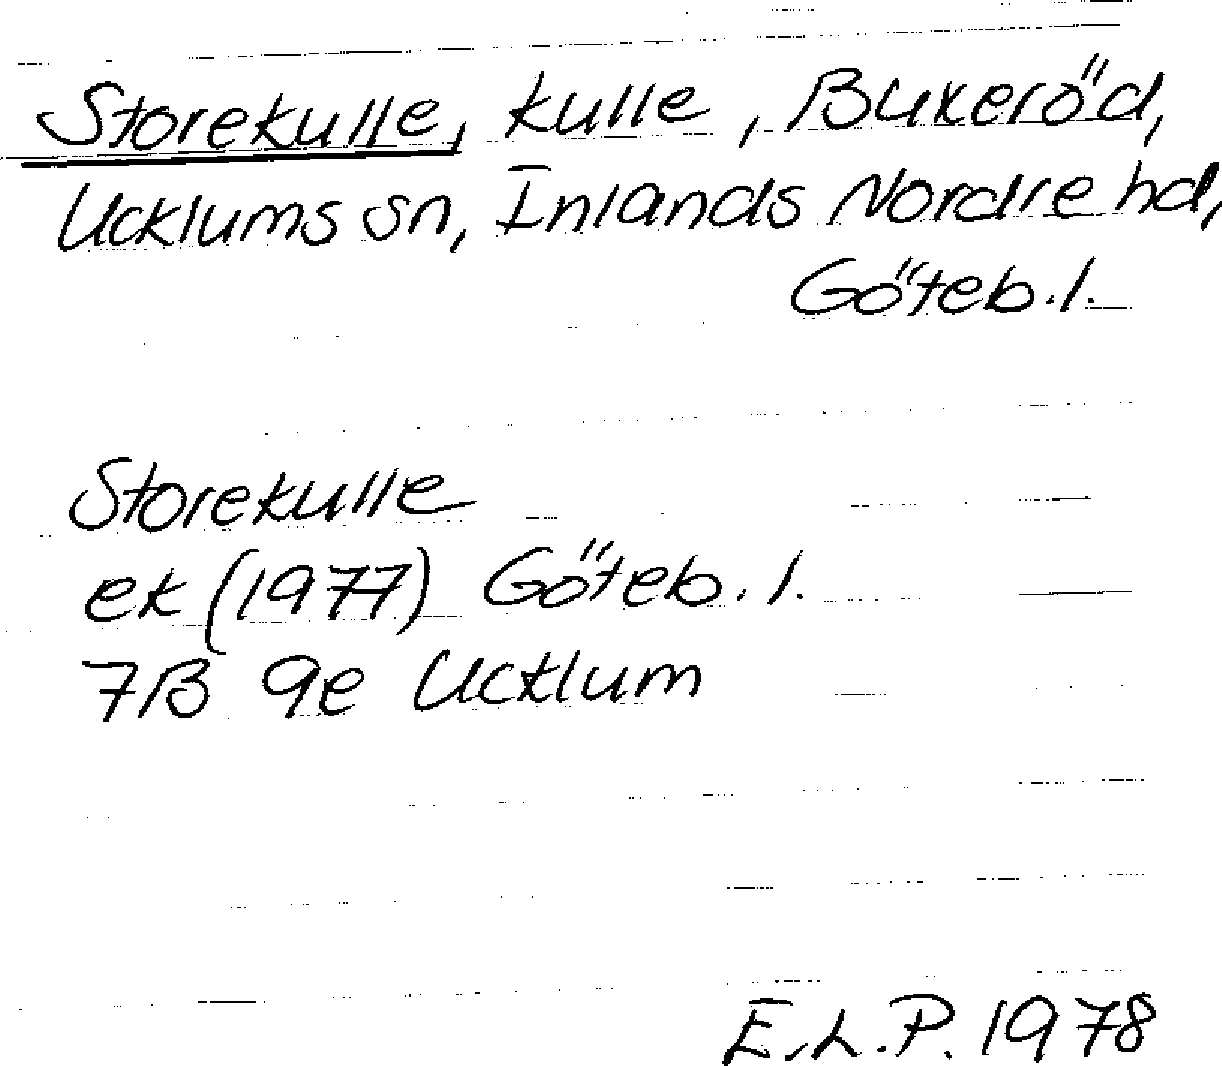 Storekulle, kulle, Buxeröd,
Ucklums sn, Inlands Nordre hd,
Göteb.l.
Storekulle
ek (1977) Göteb.l.
7B 9e Ucklum
E.L.P. 1978